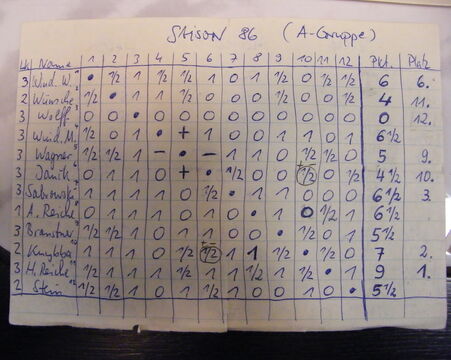 SAISON 86 (A-Gruppe)
Lk Name 1 2 3 4 5 6 7 8 9 10 11 12 Pkt. Platz
3 Wind. W. • 1/2 1 1/2 1/2 1 0 1 1/2 0 1/2 1/2 6 6.
2 Wünsche 1/2 • 1 1 1/2 0 0 0 1/2 0 0 1/2 4 11.
3 Wolff 0 0 • 0 0 0 0 0 0 0 0 0 0 12.
3 Wind. M. 1/2 0 1 • + 1 0 0 1 0 1 6 1/2
3 Wagner 1/2 1/2 1 - • - 1 1 0 1/2 1/2 0 5 9.
3 0 1 1 0 + • 1/2 0 0 1/2 0 1/2 4 1/2 10.
3 1 1 1 0 1/2 • 1 1 0 0 6 1/2 3.
1 A. Reiche 0 1 1 1 0 1 0 • 1 0 1/2 1 6 1/2
3 1/2 1/2 1 1 1 1 0 0 • 1/2 0 0 5 1/2
2 1 1 1 0 1/2 1/2 1 1 1/2 • 1/2 0 7 2.
3 H. Reiche 1/2 1 1 1 1/2 1 1 1/2 1 1/2 • 1 9 1.
2 Stein 1/2 1/2 1 0 1 1/2 1 0 0 1 0 • 5 1/2